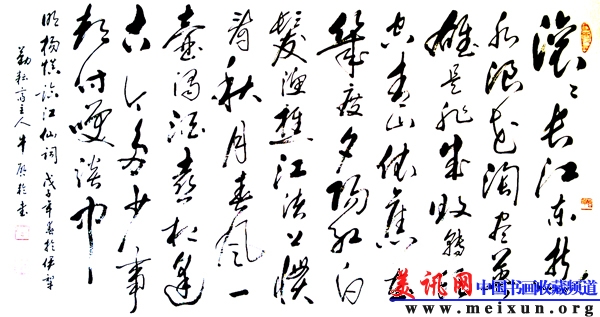 滚滚长江东逝
水浪花淘尽英
雄是非成败转头
空青山依旧在
几度夕阳红白
髮渔樵江渚上惯
看秋月春风一
壶浊酒喜相逢
古今多少事
都付笑谈中
明杨慎临江仙词 戊子年 於伊犁
勤耘斋主人 牛 書
美讯网
中国书画收藏频道
www.meixun.org